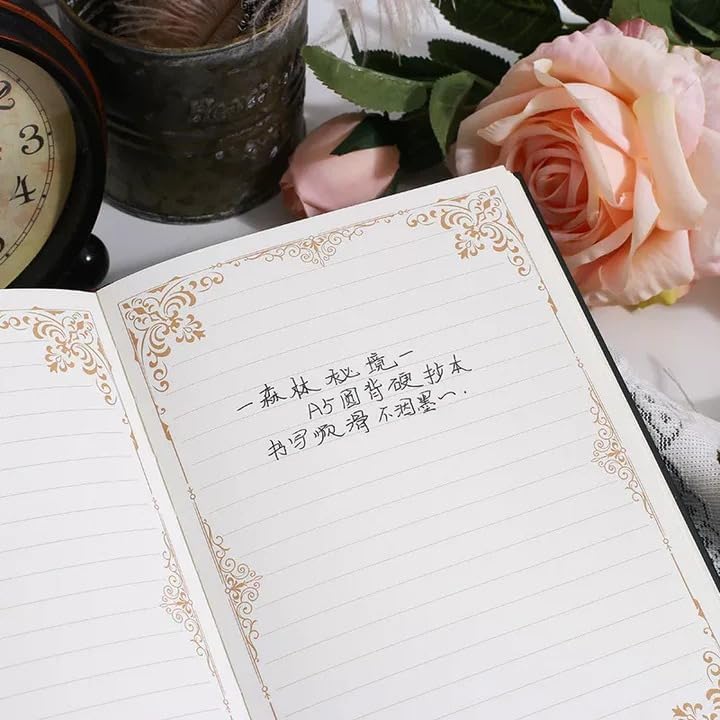 2
3
4
—森林秘境—
A5圆背硬抄本
书写顺滑不洇墨~.